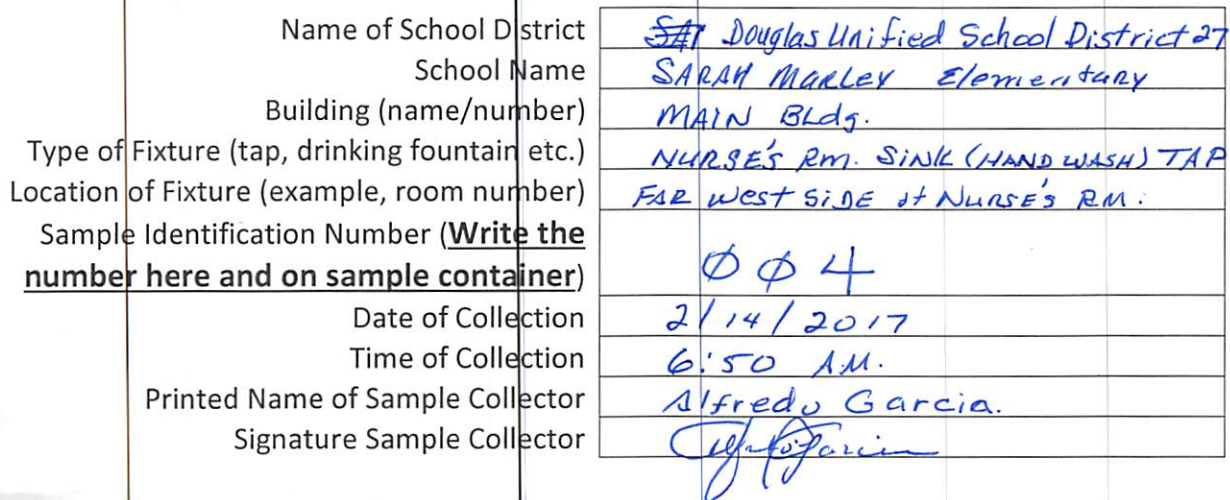 Name of School District Douglas Unified School District 27
School Name SARAH MARLEY Elementary
Building (name/number) MAIN BLdg.
Type of Fixture (tap, drinking fountain etc.) NURSE'S Rm. SINK (HAND WASH) TAP
Location of Fixture (example, room number) FAR West SIDE of NURSE'S RM.
Sample Identification Number (Write the
number here and on sample container) 004
Date of Collection 2/14/2017
Time of Collection 6:50 A.M.
Printed Name of Sample Collector Alfredo Garcia.
Signature Sample Collector